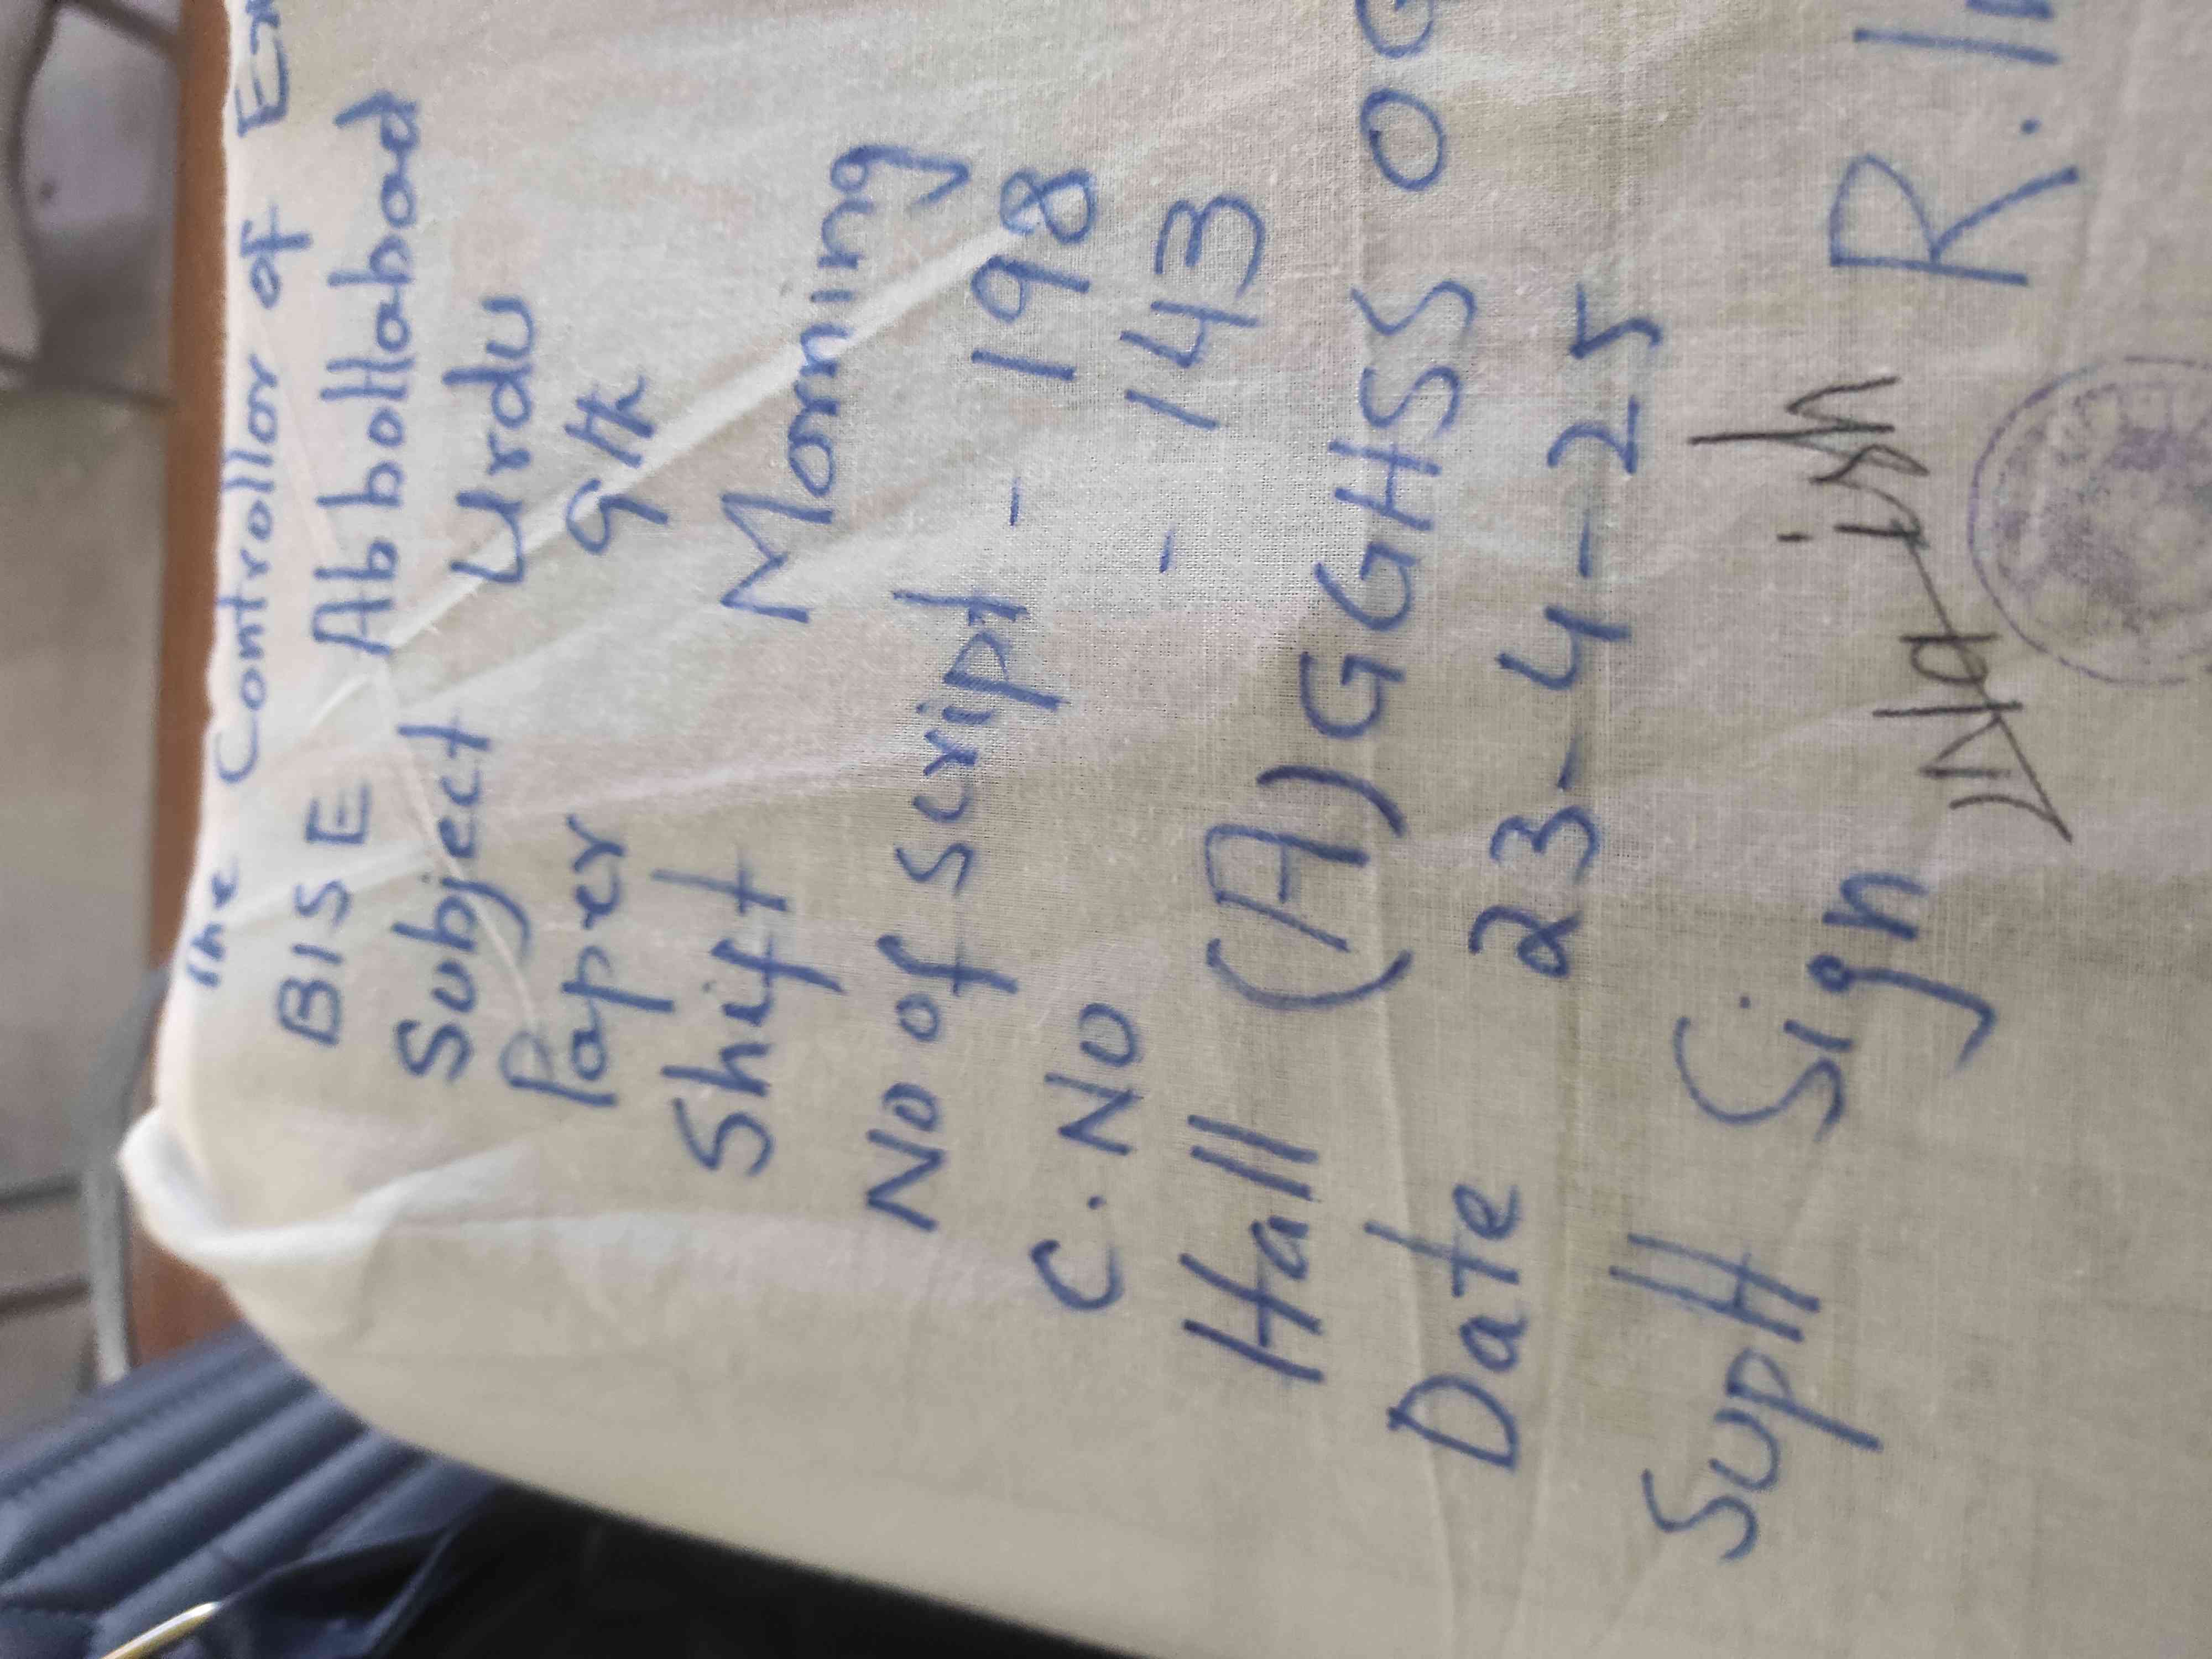 The Controllar of
BISE Abbottabad
Subject Urdu
Paper 9th
Shift Morning
No of script - 198
C. No - 143
Hall (A) GGHSS
Date 23-4-25
Suptt Sign